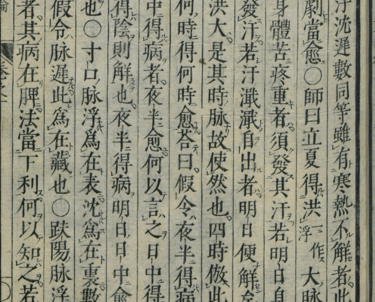 浮沈遲數同等雖有寒熱不解者此
劇當愈○師曰立夏得洪一作浮大脈
身體苦疼重者須發其汗若明日身
發汗若汗濈濈自出者明日便解矣
洪大是其時脈故使然也四時倣此
何時得何時愈荅曰假令夜半得病
中得病者夜半愈何以言之日中得
得陰則解也夜半得病明日日中愈
也○寸口脈浮爲在表沈爲在裏數
假令脈遲此爲在藏也○趺陽脈浮
者其病在脾法當下利何以知之若
論